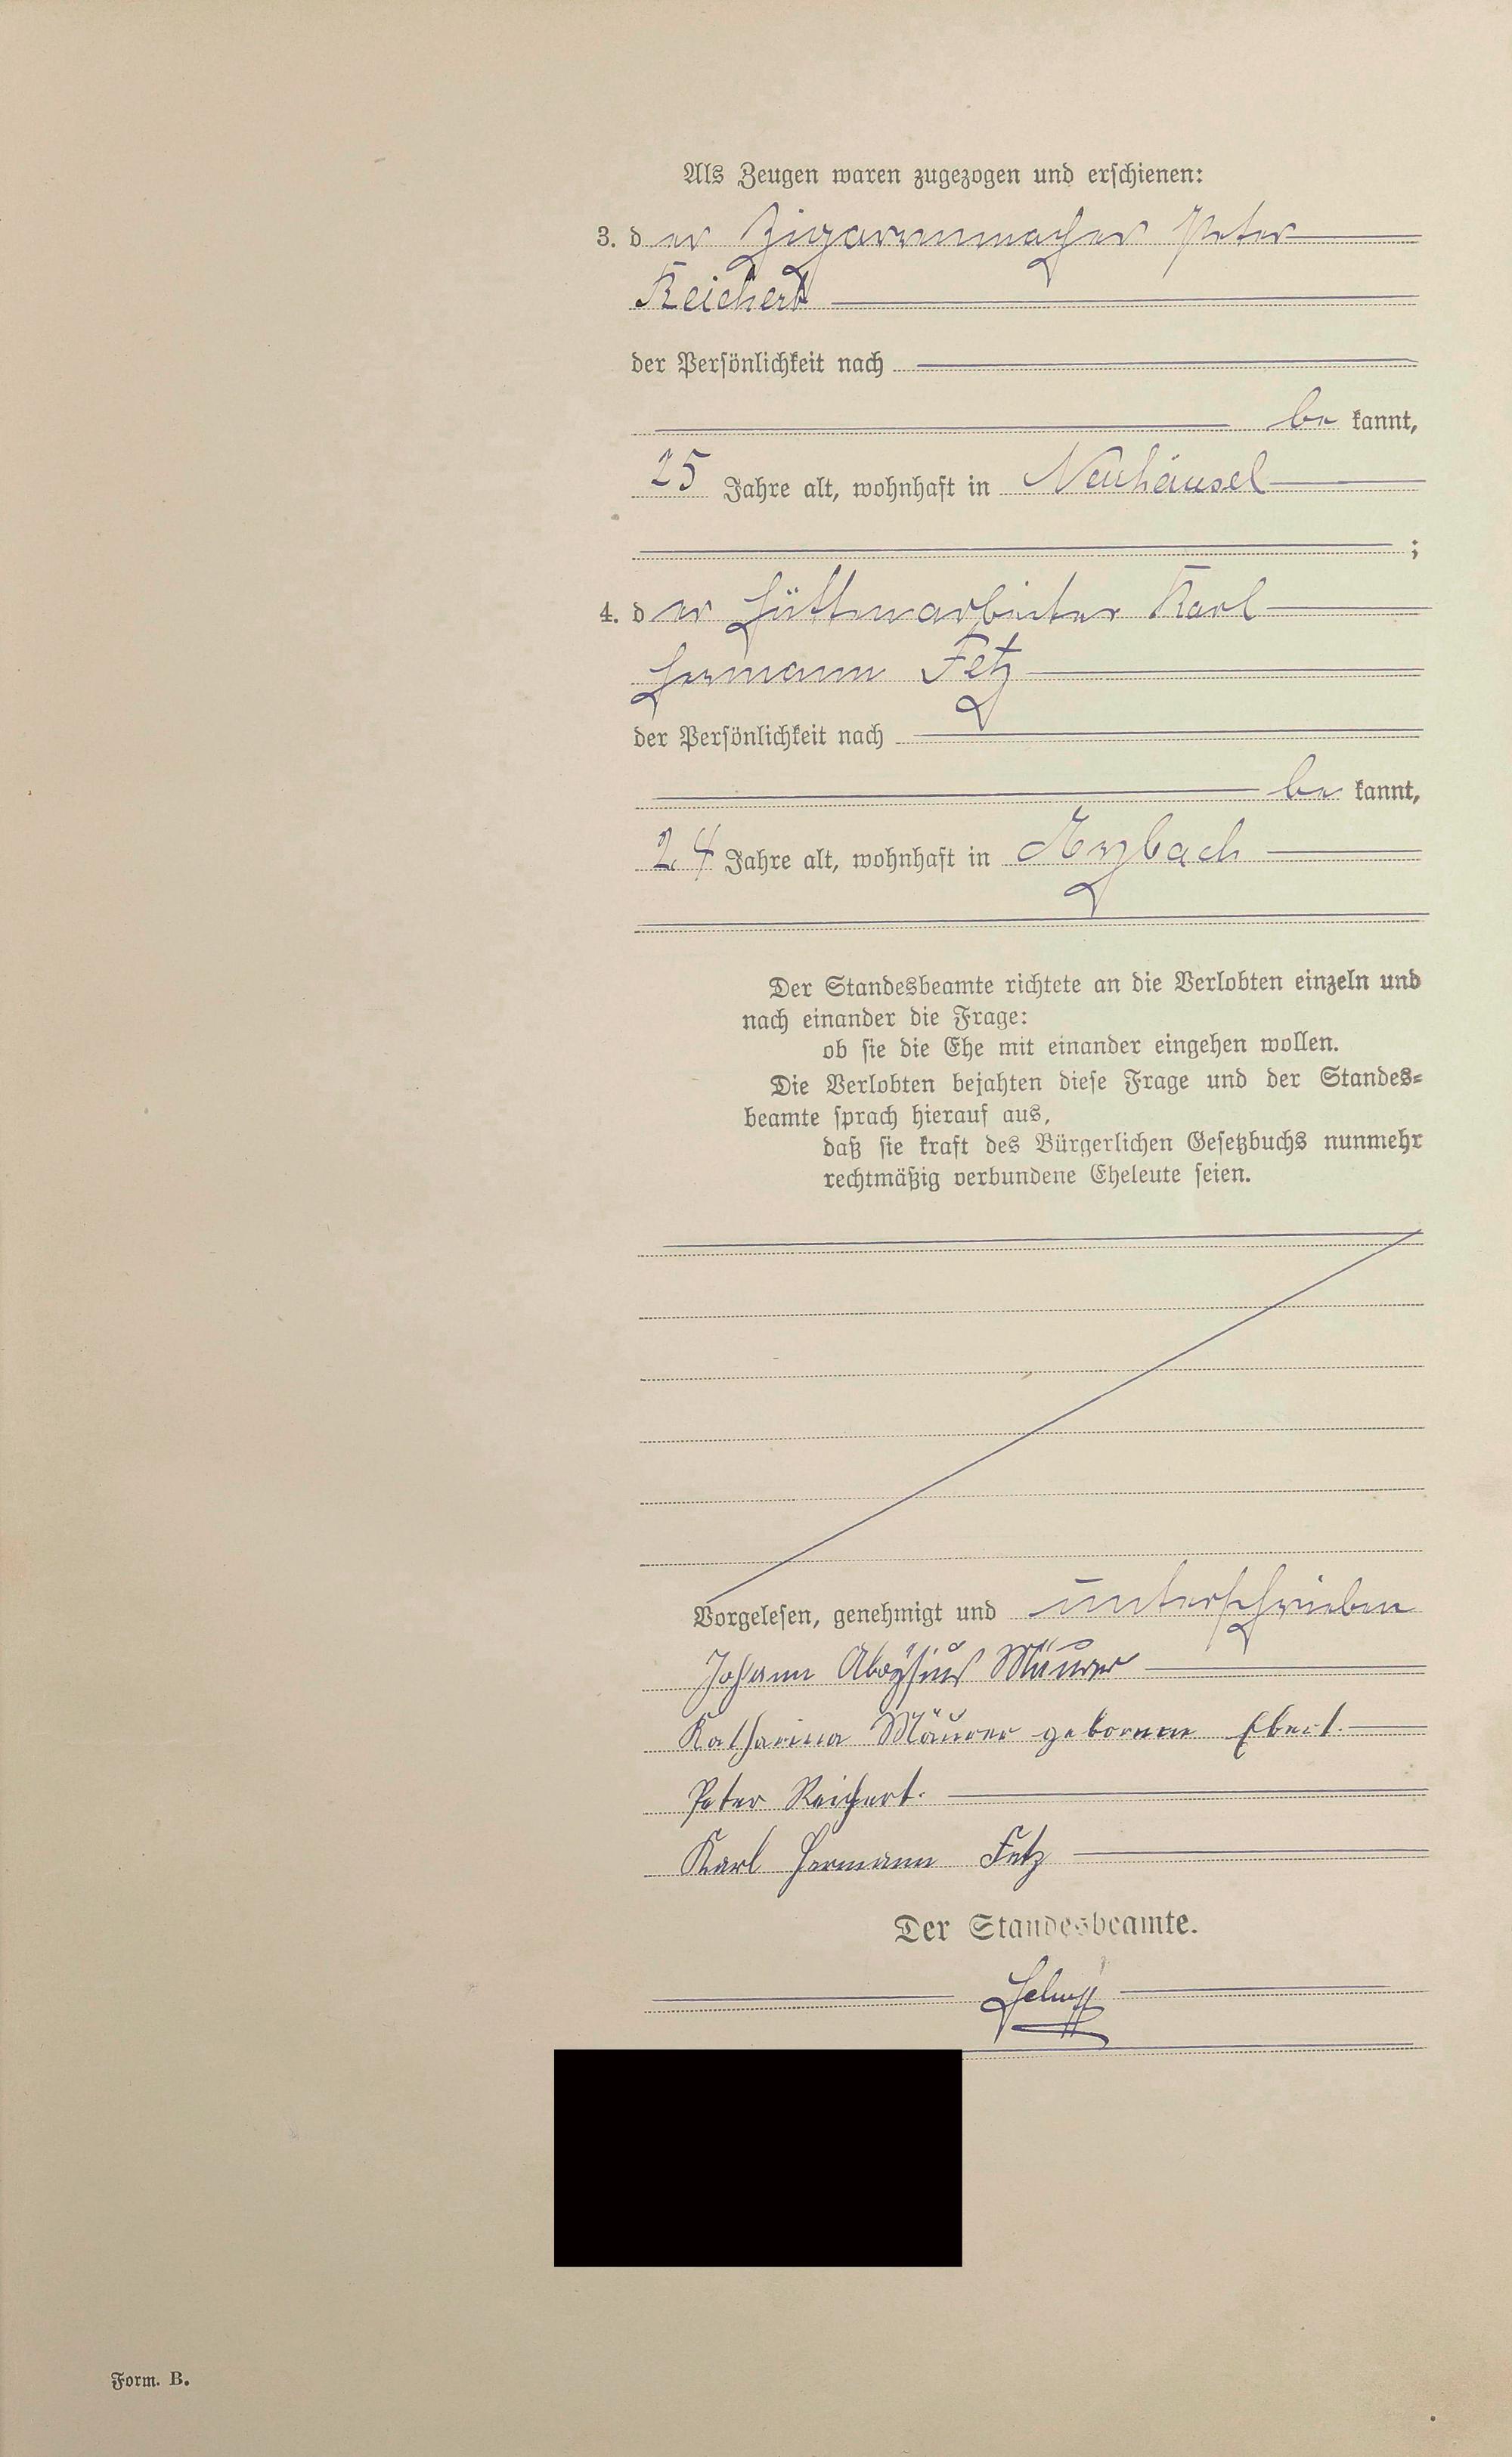 Als Zeugen waren zugezogen und erschienen:
3. der Zigarrenmacher Peter
Reichert
der Persönlichkeit nach
be kannt,
25 Jahre alt, wohnhaft in Neuhäusel
;
4. der Hüttenarbeiter Karl
Hermann Fetz
der Persönlichkeit nach
be kannt,
24 Jahre alt, wohnhaft in Arzbach
Der Standesbeamte richtete an die Verlobten einzeln und
nach einander die Frage:
ob sie die Ehe mit einander eingehen wollen.
Die Verlobten bejahten diese Frage und der Standes-
beamte sprach hierauf aus,
daß sie kraft des Bürgerlichen Gesetzbuchs nunmehr
rechtmäßig verbundene Eheleute seien.
Vorgelesen, genehmigt und unterschrieben
Johann Aloysius Mäurer
Katharina Mäurer geborene Ebert.
Peter Reichert.
Karl Hermann Fetz
Der Standesbeamte.
Form. B.